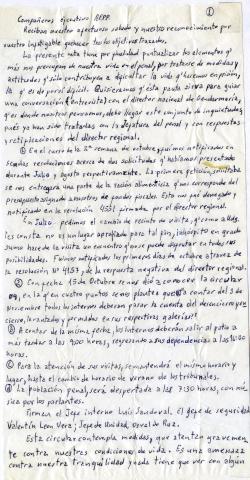 ①
Compañeros ejecutivo AFPP.
Reciban nuestro afectuoso saludo y nuestro reconocimiento por
vuestro infatigable quehacer tras los objetivos trazados.
La presente carta tiene por finalidad puntualizar los elementos q'
más nos preocupan de nuestra vida en el penal, por tratarse de medidas y
actitudes q' sólo contribuyen a dificultar la vida q' hacemos en prisión,
la q' es de por sí difícil. Quisiéramos q' esta pauta sirva para guiar
una conversación (entrevista) con el director nacional de Gendarmería,
q' es donde nosotros pensamos, debe llegar este conjunto de inquietudes,
pues ya han sido tratadas con la jefatura del penal y con respuestas
y estipulaciones del director regional.
En el curso de la 2ª semana de octubre, fuimos notificados en
sendas resoluciones acerca de dos solicitudes q' habíamos presentado
durante Julio y agosto respectivamente. La primera petición, solicitaba
se nos entregara una parte de la ración alimenticia q' nos corresponde del
presupuesto asignado a nosotros de fuentes fiscales. Esto nos fué denegado y
notificado en la resolución 4581 firmada por el director regional.
En Julio, pedimos el cambio de recinto de visita, q' como a Uds.
les consta no es un lugar apropiado para tal fin, imposibilita en grado
sumo hacer de la visita un encuentro q' nos puede disfrutar en todas sus
posibilidades. Fuimos notificados los primeros días de octubre a través de
la resolución Nº 4157, de la respuesta negativa del director regional.
② Con fecha 15 de Octubre se nos dió a conocer la circular
09, en la q' en cuatro puntos se nos plantea que a contar del 3 de
Noviembre todos los internos deberán pasar la cuenta del desencierro y en-
cierro, levantados y formados en sus respectivas galerías.
A contar de la misma fecha, los internos deberán salir al patio a
más tardar a las 9:00 horas, regresando a sus dependencias a las 16:30
horas.
Para la atención de sus visitas, se mantendrá el mismo horario y
lugar, hasta el cambio de horario de verano de los tribunales.
La población penal, será despertada a las 7:30 horas, con mú-
sica por los parlantes.
Firman el Jefe interno Luis Sandoval, el jefe de seguridad
Valentín Leon Vera; Jefe de Unidad, Osval de Ruz.
Esta circular contempla medidas, que atentan gravemen-
te contra nuestras condiciones de vida. Es una amenaza
contra nuestra tranquilidad y nada tiene que ver con algún